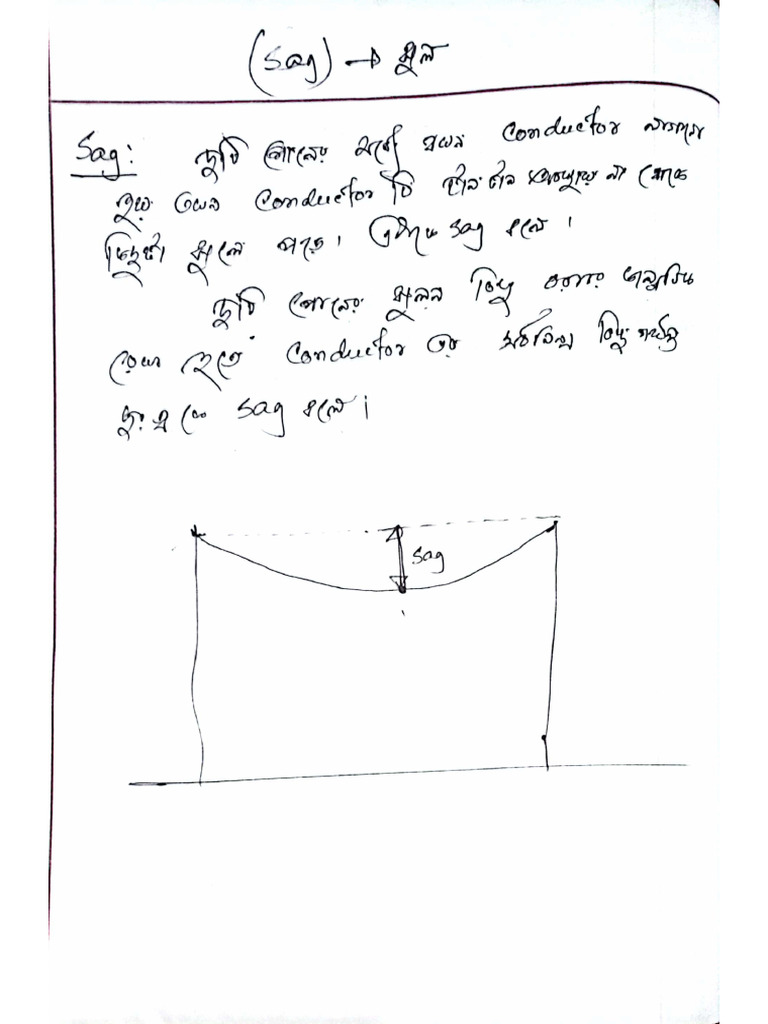 (Sag) → ঝুল
Sag: দুটি পোলের মধ্যে যখন conductor লাগানো
হয় তখন conductor টি টান টান অবস্থায় না থেকে
কিছুটা ঝুলে পড়ে। একে sag বলে।
দুটি পোলের ঝুলন বিন্দু বরাবর
রেখা হতে conductor এর সর্বনিম্ন বিন্দু পর্যন্ত
দূরত্ব কে sag বলে।
sag